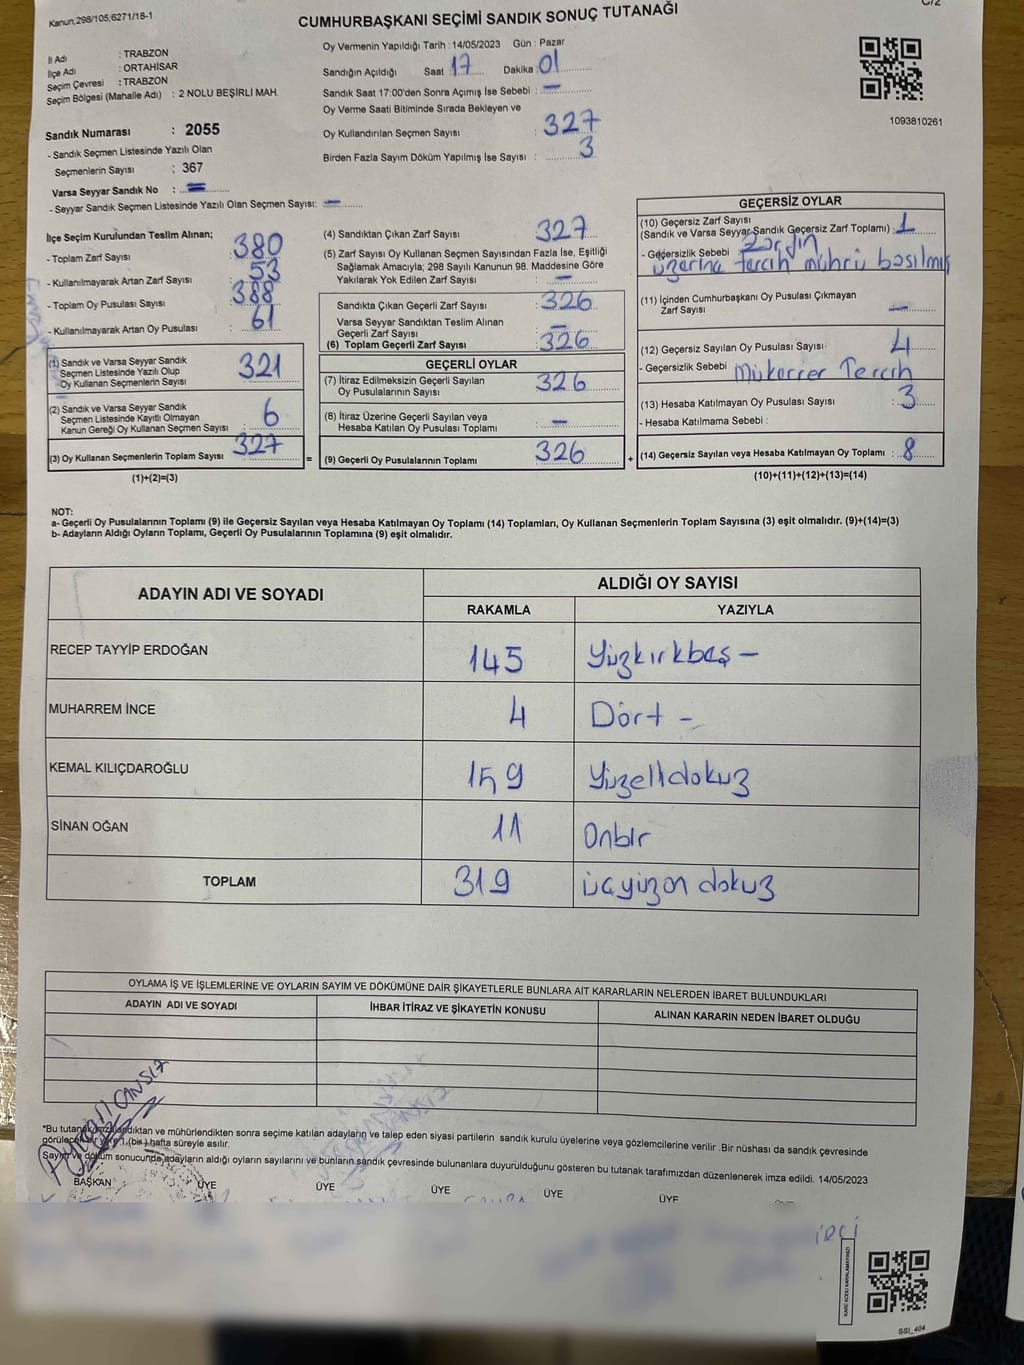 Kanun,298/105,6271/18-1
C/2
CUMHURBAŞKANI SEÇİMİ SANDIK SONUÇ TUTANAĞI
İl Adı : TRABZON
İlçe Adı : ORTAHİSAR
Seçim Çevresi : TRABZON
Seçim Bölgesi (Mahalle Adı) : 2 NOLU BEŞİRLİ MAH.
Sandık Numarası : 2055
- Sandık Seçmen Listesinde Yazılı Olan
Seçmenlerin Sayısı : 367
Varsa Seyyar Sandık No : –
- Seyyar Sandık Seçmen Listesinde Yazılı Olan Seçmen Sayısı: –
Oy Vermenin Yapıldığı Tarih : 14/05/2023 Gün : Pazar
Sandığın Açıldığı Saat 17 Dakika : 01
Sandık Saat 17:00'den Sonra Açımış İse Sebebi : –
Oy Verme Saati Bitiminde Sırada Bekleyen ve
Oy Kullandırılan Seçmen Sayısı : 327
Birden Fazla Sayım Döküm Yapılmış İse Sayısı : 3
1093810261
İlçe Seçim Kurulundan Teslim Alınan;
- Toplam Zarf Sayısı : 380
- Kullanılmayarak Artan Zarf Sayısı : 53
- Toplam Oy Pusulası Sayısı : 388
- Kullanılmayarak Artan Oy Pusulası : 61
(1) Sandık ve Varsa Seyyar Sandık
Seçmen Listesinde Yazılı Olup
Oy Kullanan Seçmenlerin Sayısı : 321
(2) Sandık ve Varsa Seyyar Sandık
Seçmen Listesinde Kayıtlı Olmayan
Kanun Gereği Oy Kullanan Seçmen Sayısı : 6
(3) Oy Kullanan Seçmenlerin Toplam Sayısı : 327
(1)+(2)=(3)
(4) Sandıktan Çıkan Zarf Sayısı : 327
(5) Zarf Sayısı Oy Kullanan Seçmen Sayısından Fazla İse, Eşitliği
Sağlamak Amacıyla; 298 Sayılı Kanunun 98. Maddesine Göre
Yakılarak Yok Edilen Zarf Sayısı : –
Sandıkta Çıkan Geçerli Zarf Sayısı : 326
Varsa Seyyar Sandıktan Teslim Alınan
Geçerli Zarf Sayısı : –
(6) Toplam Geçerli Zarf Sayısı : 326
GEÇERLİ OYLAR
(7) İtiraz Edilmeksizin Geçerli Sayılan
Oy Pusulalarının Sayısı : 326
(8) İtiraz Üzerine Geçerli Sayılan veya
Hesaba Katılan Oy Pusulası Toplamı : –
= (9) Geçerli Oy Pusulalarının Toplamı : 326
GEÇERSİZ OYLAR
(10) Geçersiz Zarf Sayısı
(Sandık ve Varsa Seyyar Sandık Geçersiz Zarf Toplamı) : 1
- Geçersizlik Sebebi : Zarfın
üzerine tercih mührü basılmış
(11) İçinden Cumhurbaşkanı Oy Pusulası Çıkmayan
Zarf Sayısı : –
(12) Geçersiz Sayılan Oy Pusulası Sayısı : 4
- Geçersizlik Sebebi : Mükerrer Tercih
(13) Hesaba Katılmayan Oy Pusulası Sayısı : 3
- Hesaba Katılmama Sebebi :
+ (14) Geçersiz Sayılan veya Hesaba Katılmayan Oy Toplamı : 8
(10)+(11)+(12)+(13)=(14)
NOT:
a- Geçerli Oy Pusulalarının Toplamı (9) ile Geçersiz Sayılan veya Hesaba Katılmayan Oy Toplamı (14) Toplamları, Oy Kullanan Seçmenlerin Toplam Sayısına (3) eşit olmalıdır. (9)+(14)=(3)
b- Adayların Aldığı Oyların Toplamı, Geçerli Oy Pusulalarının Toplamına (9) eşit olmalıdır.
ADAYIN ADI VE SOYADI ALDIĞI OY SAYISI
RAKAMLA YAZIYLA
RECEP TAYYİP ERDOĞAN 145 Yüzkırkbeş –
MUHARREM İNCE 4 Dört –
KEMAL KILIÇDAROĞLU 159 Yüzellidokuz
SİNAN OĞAN 11 Onbir
TOPLAM 319 üçyüzon dokuz
OYLAMA İŞ VE İŞLEMLERİNE VE OYLARIN SAYIM VE DÖKÜMÜNE DAİR ŞİKAYETLERLE BUNLARA AİT KARARLARIN NELERDEN İBARET BULUNDUKLARI
ADAYIN ADI VE SOYADI İHBAR İTİRAZ VE ŞİKAYETİN KONUSU ALINAN KARARIN NEDEN İBARET OLDUĞU
CANSIZ
*Bu tutanak imzalandıktan ve mühürlendikten sonra seçime katılan adayların ve talep eden siyasi partilerin sandık kurulu üyelerine veya gözlemcilerine verilir .Bir nüshası da sandık çevresinde
görülecek bir yere 1 (bir) hafta süreyle asılır.
Sayım ve döküm sonucunda adayların aldığı oyların sayılarını ve bunların sandık çevresinde bulunanlara duyurulduğunu gösteren bu tutanak tarafımızdan düzenlenerek imza edildi. 14/05/2023
BAŞKAN ÜYE ÜYE ÜYE ÜYE ÜYE
KARE KODU KARALAMAYINIZ!
SSI_404